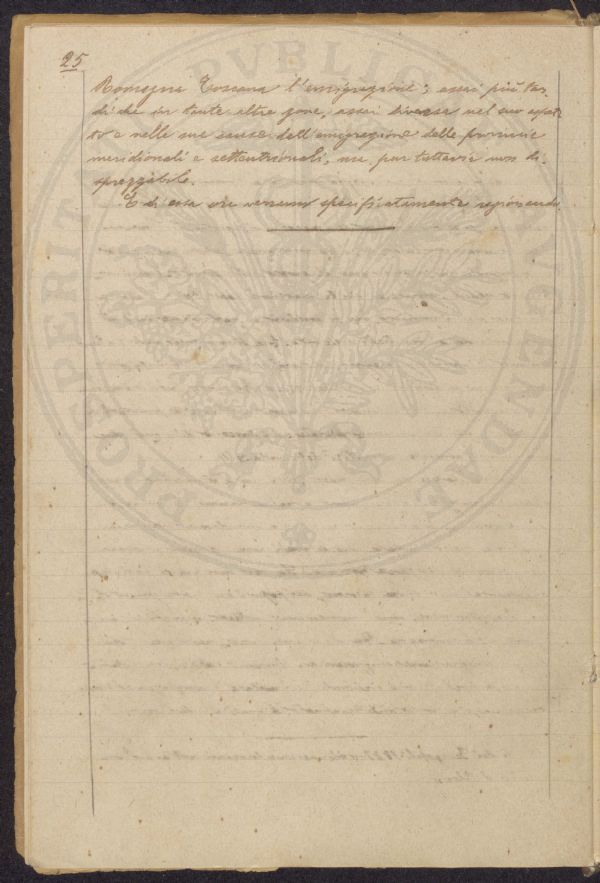 25
Romagna Toscana l'emigrazione; assai più tar-
di che in tante altre zone, assai diversa nel suo aspet-
to e nelle sue cause dell'emigrazione delle provincie
meridionali e settentrionali, ma pur tuttavia non di-
sprezzabile.
E di essa ora verremo specificatamente ragionando.
PROSPERITATI PVBLICAE AVGENDAE